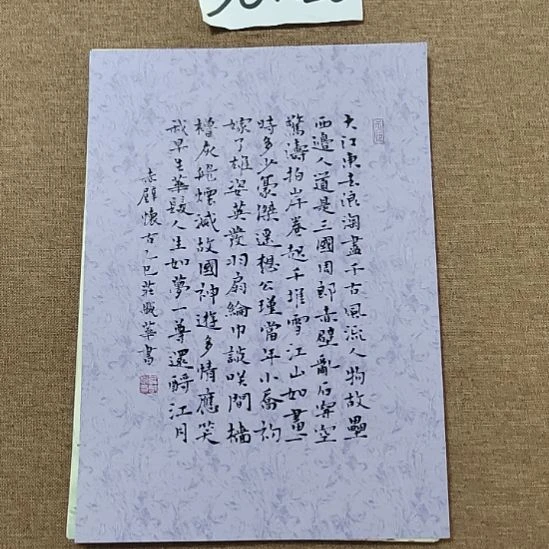 大江東去浪淘盡千古風流人物故壘
西邊人道是三國周郎赤壁亂石穿空
驚濤拍岸卷起千堆雪江山如畫一
時多少豪傑遙想公瑾當年小喬初
嫁了雄姿英發羽扇綸巾談咲間檣
櫓灰飛煙滅故國神遊多情應笑
我早生華髮人生如夢一尊還酹江月
赤壁懷古乙巳莊華書